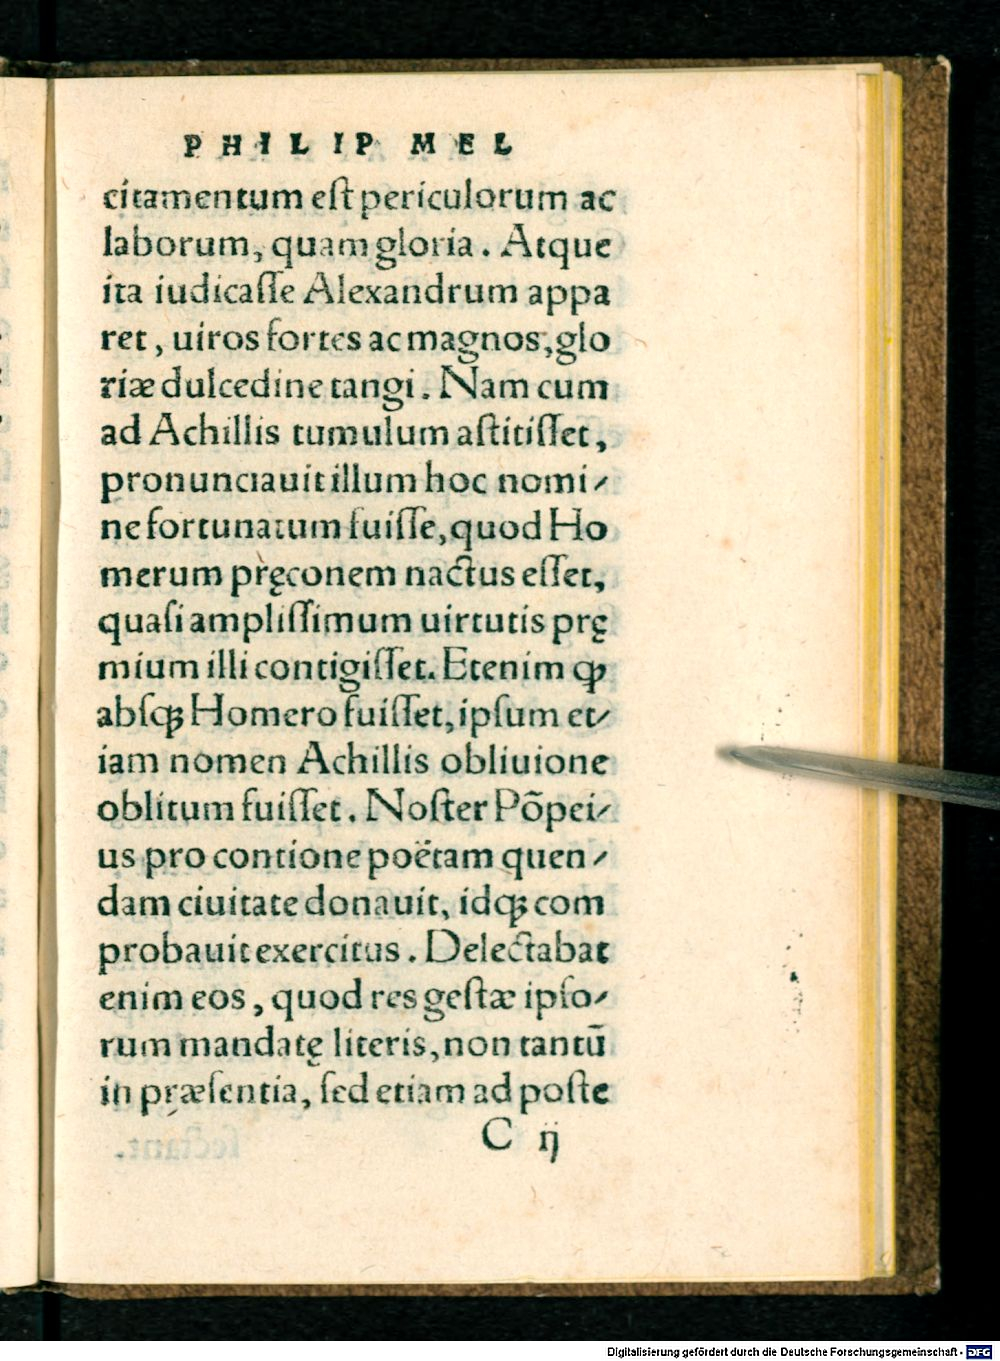 PHILIP MEL
citamentum est periculorum ac
laborum, quam gloria. Atque
ita iudicasse Alexandrum appa
ret, uiros fortes ac magnos, glo
riæ dulcedine tangi. Nam cum
ad Achillis tumulum astitisset,
pronunciauit illum hoc nomi-
ne fortunatum fuisse, quod Ho
merum pręconem nactus esset,
quasi amplissimum uirtutis prę
mium illi contigisset. Etenim ꝙ
absqꝫ Homero fuisset, ipsum et-
iam nomen Achillis obliuione
oblitum fuisset. Noster Põpei-
us pro contione poëtam quen-
dam ciuitate donauit, idqꝫ com
probauit exercitus. Delectabat
enim eos, quod res gestæ ipso-
rum mandatę literis, non tantũ
in præsentia, sed etiam ad poste
C ij
Digitalisierung gefördert durch die Deutsche Forschungsgemeinschaft - DFG